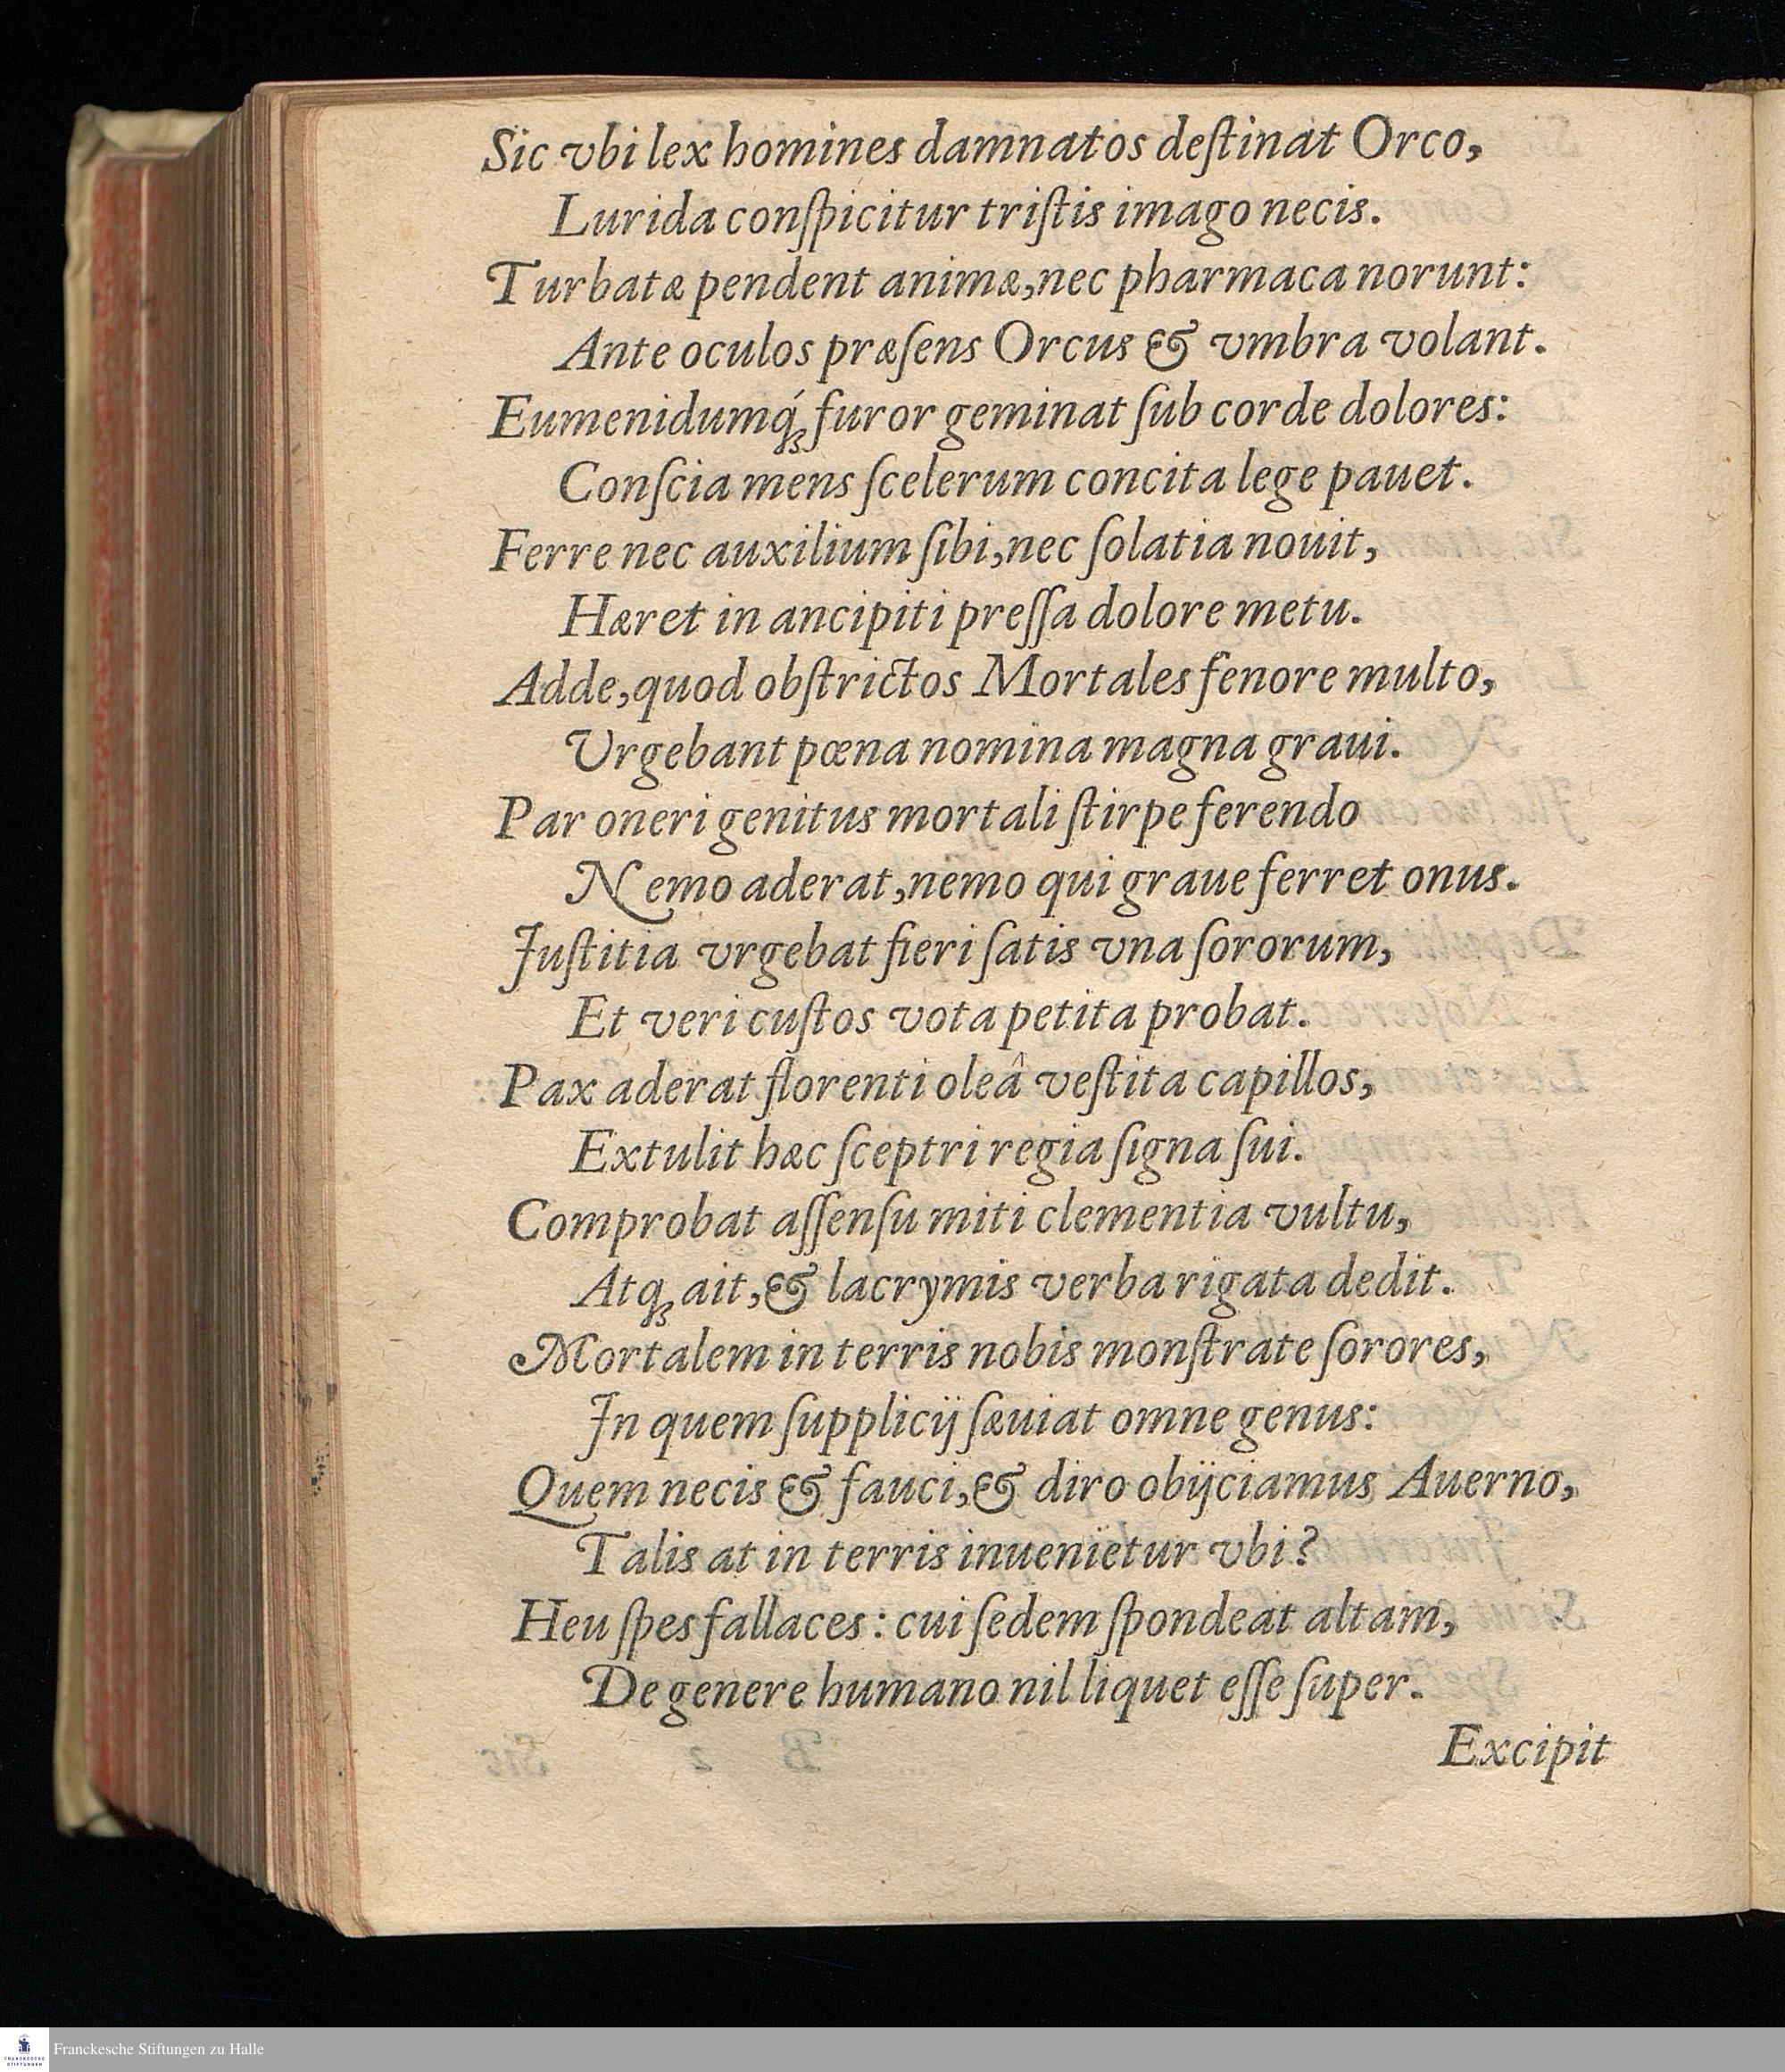 Sic vbi lex homines damnatos deſtinat Orco,
Lurida conſpicitur triſtis imago necis.
Turbatæ pendent animæ, nec pharmaca norunt:
Ante oculos præſens Orcus & vmbra volant.
Eumenidumq́ꝫ furor geminat ſub corde dolores:
Conſcia mens ſcelerum concita lege pauet.
Ferre nec auxilium ſibi, nec ſolatia nouit,
Hæret in ancipiti preſſa dolore metu.
Adde, quod obſtrictos Mortales fenore multo,
Urgebant pœna nomina magna graui.
Par oneri genitus mortali ſtirpe ferendo
Nemo aderat, nemo qui graue ferret onus.
Juſtitia vrgebat fieri ſatis vna ſororum,
Et veri cuſtos vota petita probat.
Pax aderat florenti oleâ veſtita capillos,
Extulit hæc ſceptri regia ſigna ſui.
Comprobat aſſenſu miti clementia vultu,
Atqꝫ ait, & lacrymis verba rigata dedit.
Mortalem in terris nobis monſtrate ſorores,
Jn quem ſupplicij ſæuiat omne genus:
Quem necis & fauci, & diro obijciamus Auerno,
Talis at in terris inuenïetur vbi?
Heu ſpes fallaces: cui ſedem ſpondeat altam,
De genere humano nil liquet eſſe ſuper.
Excipit
Franckesche Stiftungen zu Halle
FRANCKESCHE
STIFTUNGEN